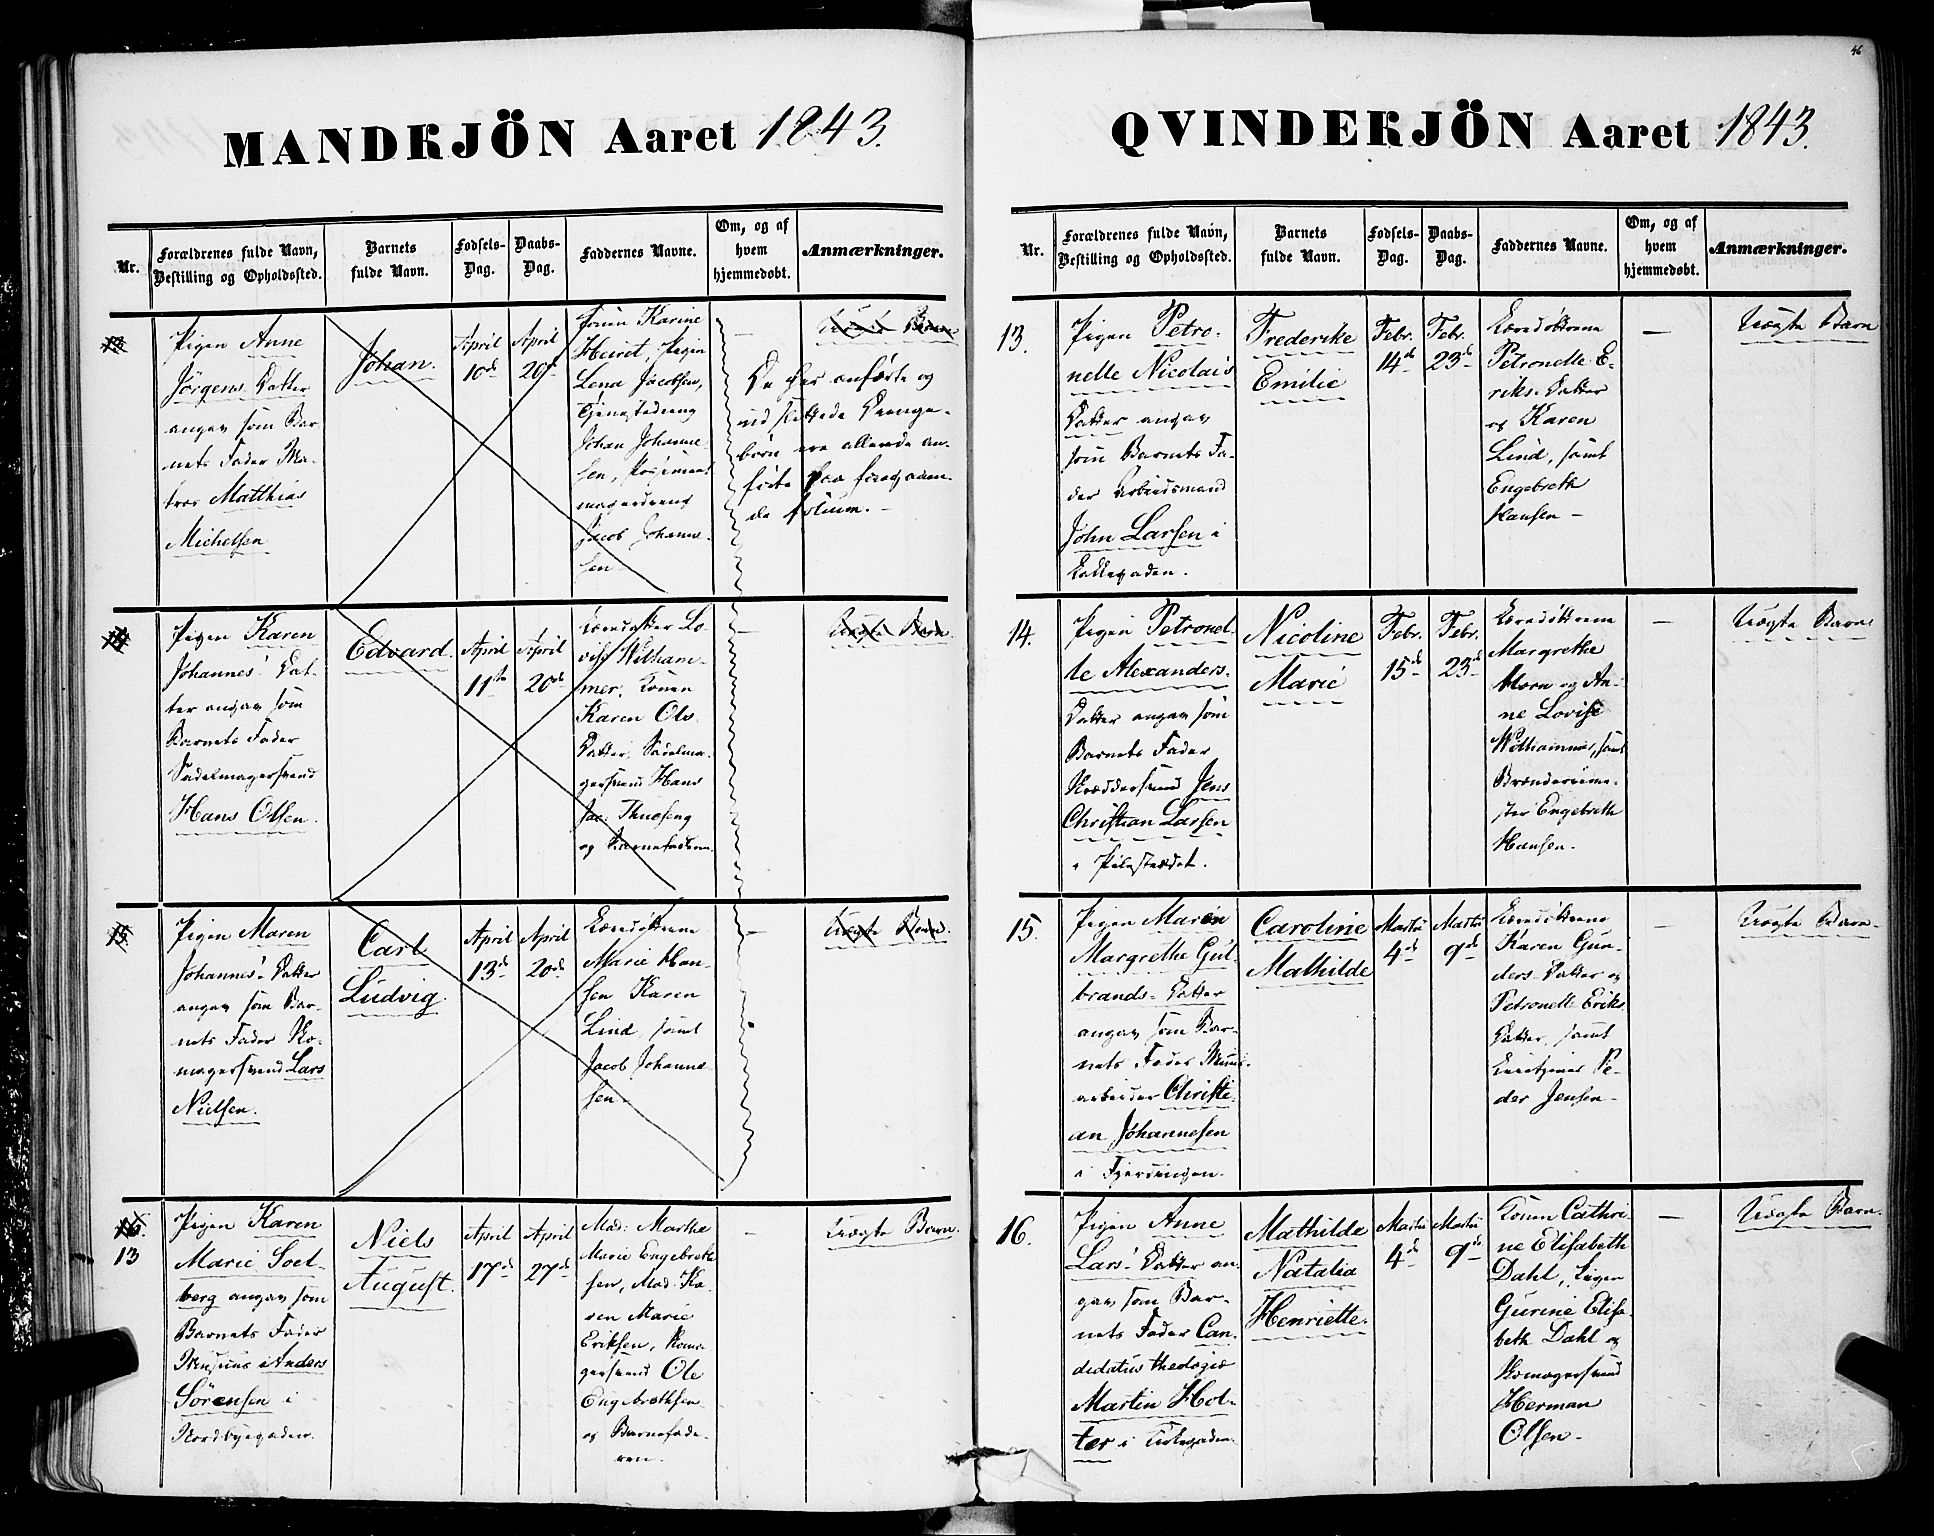 46
MANDKJÖN Aaret 1843.
Nr.
Forældrenes fulde Navn,
Bestilling og Opholdssted.
Barnets
fulde Navn.
Fødsels-
Dag.
Daabs-
Dag.
Faddernes Navne.
Om, og af
hvem
hjemmedøbt.
Anmærkninger.
Pigen Anne
Jörgens Datter
angav som Bar-
nets Fader Ma-
tros Matthias
Michelsen
Johan.
April
10de
April
20de
Karine
Heiret, Pigen
Lena Jacobsen,
Johan Johanne
sen,
Jacob Johanne-
sen
—
Uægte Barn
De her anførte og
udslettede Drenge-
børn ere allerede an-
førte paa foregaaen-
de folium. -
14
Pigen Karen
Johannes' Dat-
ter angav som
Barnets Fader
Sadelmagersvend
Hans Olsen.
Edvard.
April
11te
April
20de
Lo-
vise Wilham-
mer, Konen
Karen Ols-
Datter, Sadelma-
gersvend Hans
Jac: Thuseng
og Barnefaderen.
—
Uægte Barn.
15
Pigen Maren
Johannes' Datter
angav som Bar-
nets Fader Sko-
magersvend Lars
Nielsen.
Carl
Ludvig.
April
13de
April
20de
Marie Han-
sen Karen
Lind, samt
Jacob Johanne-
sen.
—
Uægte Barn.
16.
13
Pigen Karen
Marie Soel-
berg angav som
Barnets Fader
Anders
Sörensen i
Nordbygaden.
Niels
August.
April
17de
April
27de
Mad: Marthe
Marie Engebreth
sen, Mad. Ka-
ren Marie
Eriksen, Skoma-
gersvend Ole
Engebrethsen
og Barnefade-
ren.
—
Uægte Barn.
QVINDEKJÖN Aaret 1843.
Nr.
Forældrenes fulde Navn,
Bestilling og Opholdssted.
Barnets
fulde Navn.
Fødsels-
Dag.
Daabs-
Dag.
Faddernes Navne.
Om, og af
hvem
hjemmedøbt.
Anmærkninger.
13.
Pigen Petro-
nelle Nicolais
Datter angav
som Barnets Fa-
der Arbeidsmand
John Larsen i
Lakkegaden.
Frederike
Emilie
Febr.
14de
Febr.
23de
Petronelle E-
riks-Datter
og Karen
Lind, samt
Engebreth
Hansen -
—
Uægte Barn
14.
Pigen Petronel-
le Alexanders-
Datter angav som
Barnets Fader
Skræddersvend Jens
Christian Larsen
i Pilestrædet.
Nicoline
Marie
Febr.
15de
Febr.
23de
Margrethe
Horn og An-
ne Lovise
Wilhammer, samt
Engebreth
Hansen.
—
Uægte Barn
15.
Pigen Maren
Margrethe Gul-
brands-Datter
angav som Bar-
nets Fader Muur-
arbeider Christi-
an Johannesen
i Fjerdingen.
Caroline
Mathilde
Martii
4de
Martii
9de
Karen Gun-
ders-Datter og
Petronelle Eriks
Datter, samt
Pe-
der Jensen -
—
Uægte Barn.
16.
Pigen Anne
Lars'-Datter an-
gav som Bar-
nets Fader Can-
didatus theologiæ
Martin Hol-
ter i
Mathilde
Natalia
Henriette.
Martii
4de
Martii
9de
Konen Cathri-
ne Elisabeth
Dahl, Pigen
Gurine Elisa-
beth Dahl og
Skomagersvend
Herman
Olsen -
—
Uægte Barn.